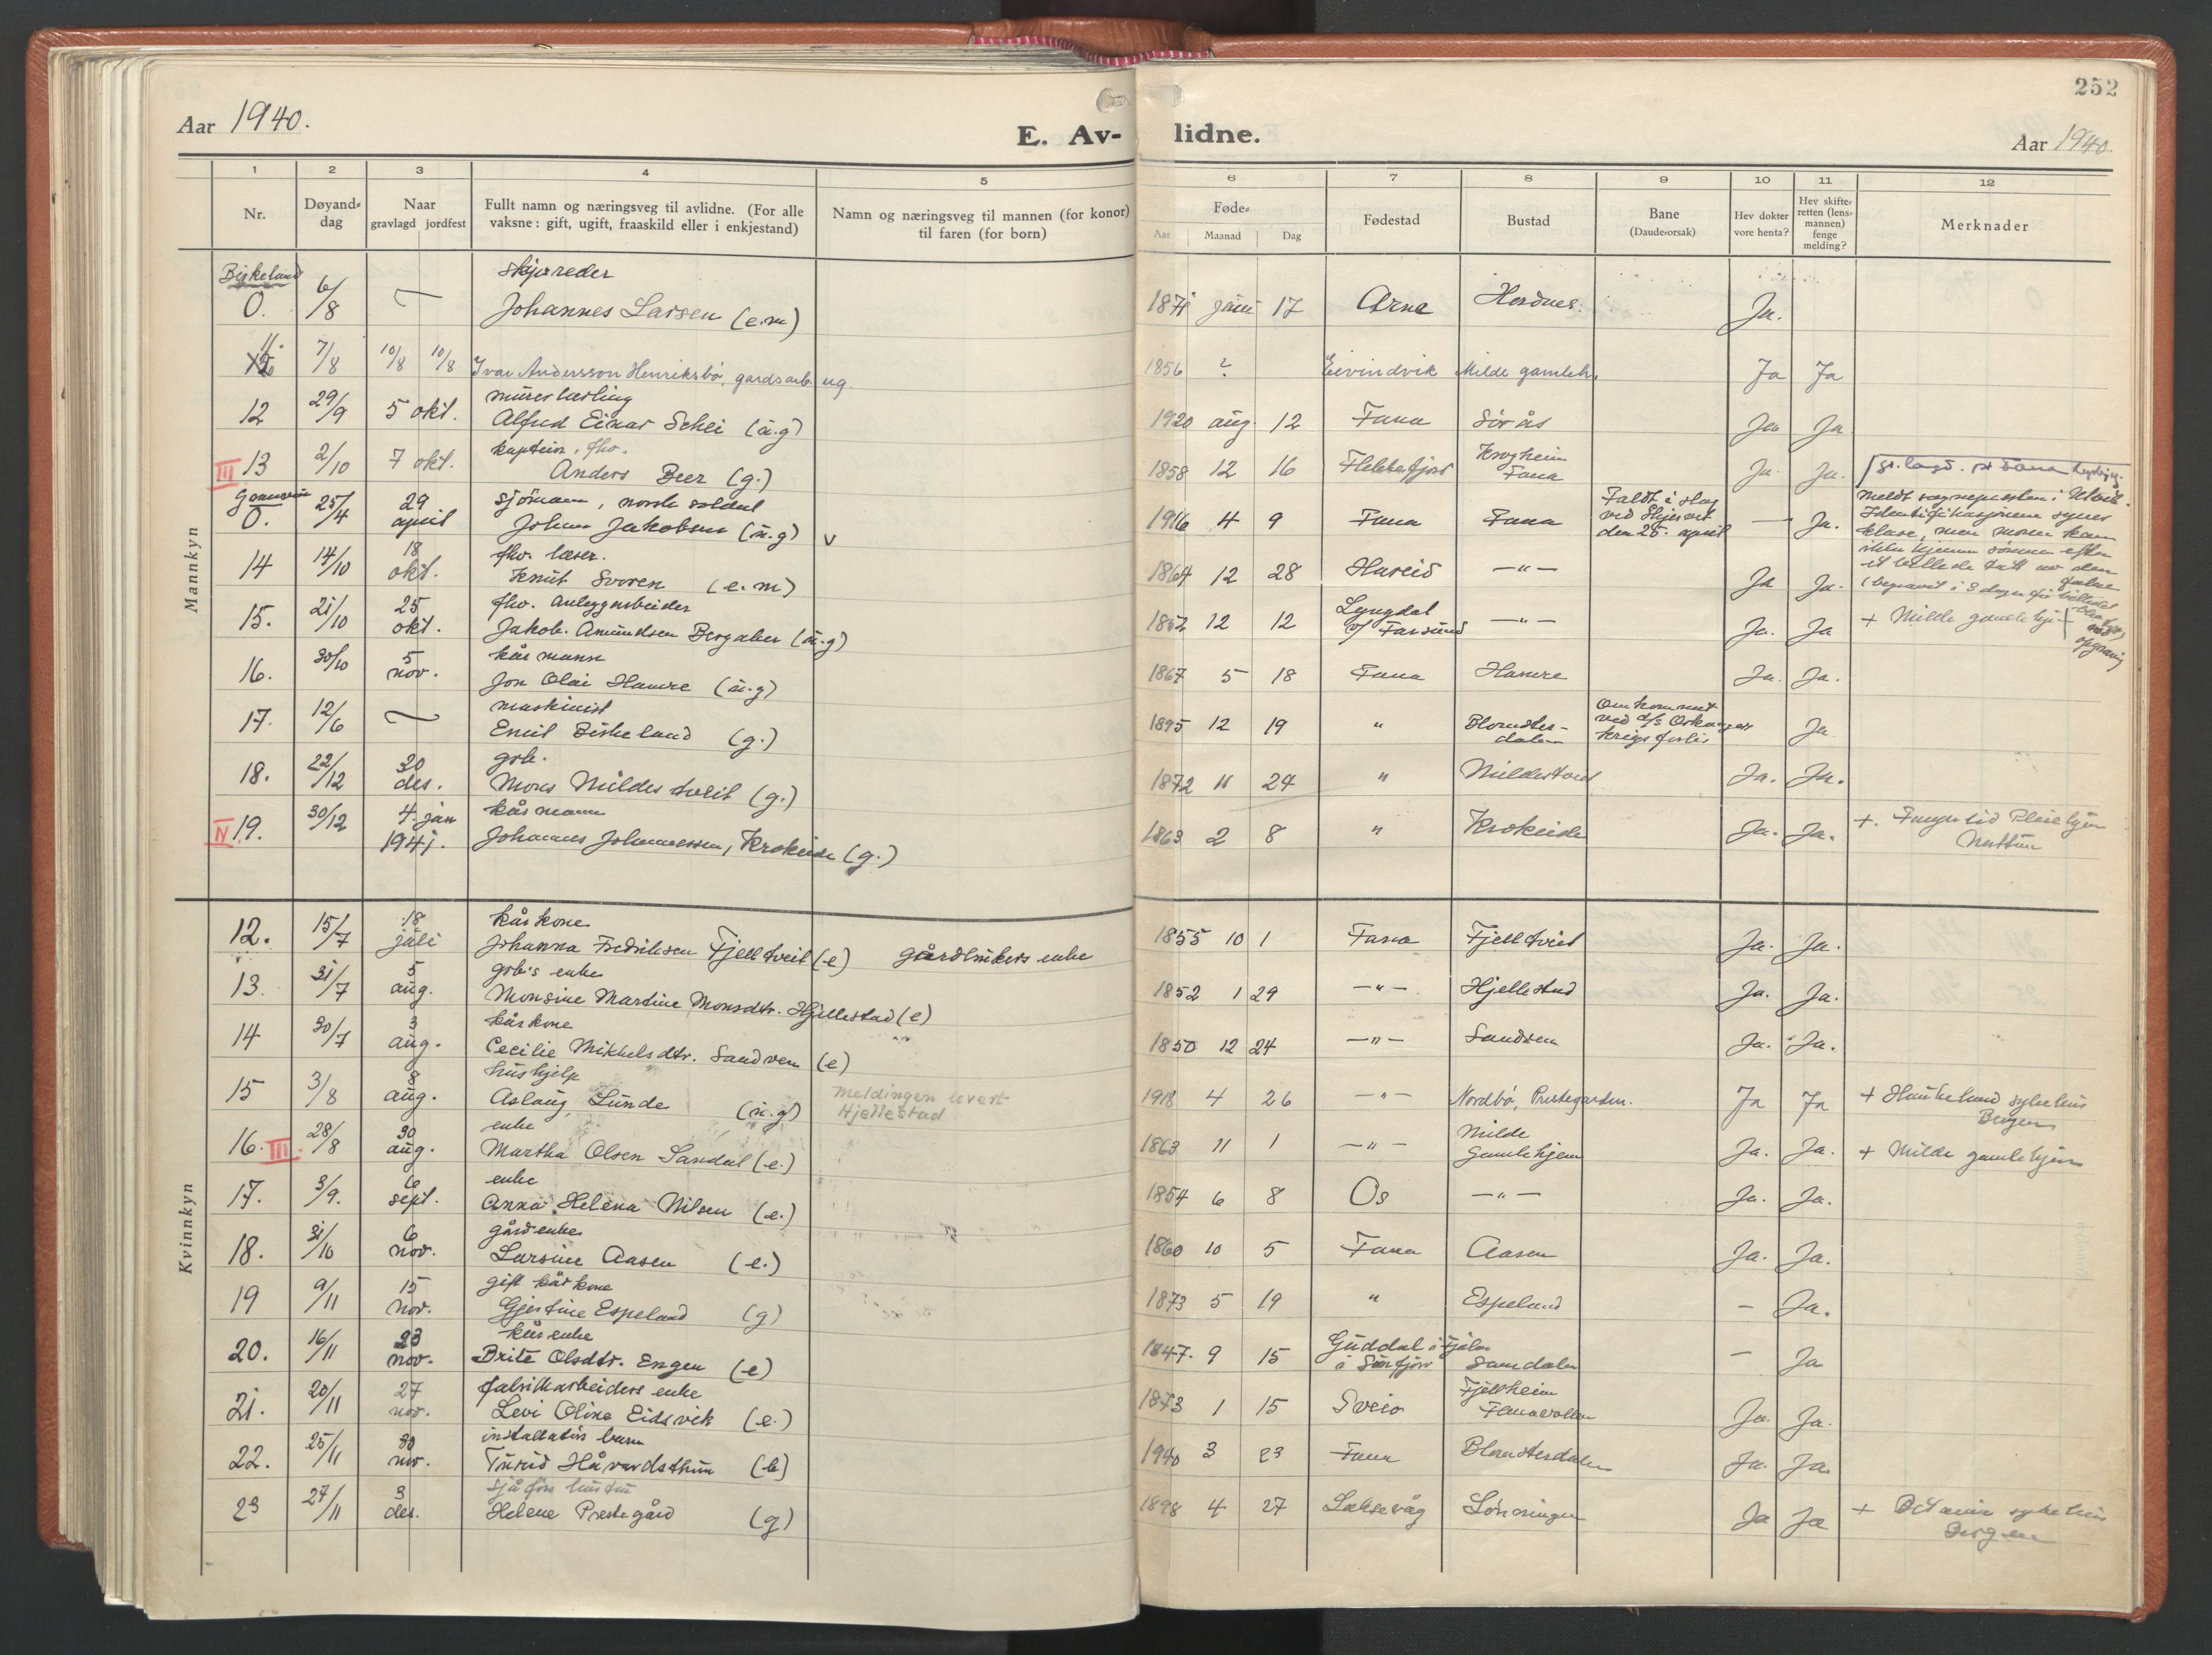 252
Aar 1940.
E. Av- lidne.
Aar 1940.
1 2 3 4 5 6 7 8 9 10 11 12
Nr.
Døyand-
dag
Naar
gravlagd jordfest
Fullt namn og næringsveg til avlidne. (For alle
vaksne: gift, ugift, fraaskild eller i enkjestand)
Namn og næringsveg til mannen (for konor)
til faren (for born)
Føde-
Aar Maanad Dag
Fødestad
Bustad
Bane
(Daudsorsak)
Hev dokter
vore henta?
Hev skifte-
retten (lens-
mannen)
fenge
melding?
Merknader
Mannkyn
Birkeland skipsreder
O. 6/8 — Johannes Larsen (e.m) juni 17 Arna Hordnes. Ja.
11. 7/8 10/8 10/8 Ivar Andersson Henriksbø, gardsarb. ug. 1856 ? Eivindvik Milde gamleh. Ja Ja
murerlærling
12 29/9 5 okt. Alfred Einar Schei (u.g) 1920 aug. 12 Fana Sørås Ja Ja
kaptein, fhv. Krogheim
III 13 2/10 7 okt. Anders Beer (g.) 1858 12 16 Flekkefjord Fana Ja. Ja.
sjømann, norsk soldat
O. 25/4 29 april Johan Jakobsen (u.g) v 1916 4 9 Fana Fana Faldt i slag
ved
den 25. april — Ja.
Identifikasjonen synes
klare, men moren kan
fhv. læser.
14 14/10 18 okt. Knut Svoren (e.m) 1864 12 28 Hareid —"— Ja Ja.
fhv. Anleggsarbeider
15. 21/10 25 okt. Jakob Amundsen (u.g) 12 12 Lyngdal
v/ Farsund —"— Ja. Ja + Milde gamlehj.
kårmann
16. 30/10 5 nov. Jon Olai Hamre (u.g) 1867 5 18 Fana Hamre Ja. Ja.
maskinist
17. 12/6 — Emil Birkeland (g.) 1895 12 19 " Blomster-
dalen Omkommet
ved d/s
krigsforlis Ja
grb.
18. 22/12 30 des. Mons Mildestveit (g.) 1872 11 24 " Mildestveit Ja. Ja.
kårmann
IV 19. 30/12 4. jan 1941. Johannes Johannessen, Krokeide (g.) 1863 2 8 " Krokeide Ja. Ja. +. Pleiehjem
Nesttun
Kvinnkyn
kårkone
12. 15/7 18 juli Johanna Fredriksen Fjelltveit (e) gårdbrukers enke 1855 10 1 Fana Fjelltveit Ja. Ja.
grb's enke
13. 31/7 5 aug. Monsine Martine Monsdtr. Hjellestad (e) 1852 1 29 —"— Hjellestad Ja. Ja.
kårkone
14 30/7 3 aug. Cecilie Mikkelsdtr. Sandven (e) 1850 12 24 —"— Sandven Ja. Ja.
hushjelp
15 3/8 8 aug. Aslaug Lunde (u.g) Meldingen levert
Hjellestad 1918 4 26 —"— Nordbø, Prestegarden. Ja Ja + Haukeland sykehus
Bergen
enke
16. III 28/8 30 aug. Martha Olsen Sandal (e.) 1863 11 1 —"— Milde
Gamlehjem Ja. Ja. + Milde gamlehjem
enke
17. 3/9. 6 sept. Anna Helena Nilsen (e.) 1854 6 8 Os —"— Ja. Ja.
gårdenke
18. 31/10 6 nov. Larsine Aasen (e.) 1860 10 5 Fana Aasen Ja. Ja.
gift kårkone
19 9/11 15 nov. Gjertine Espeland (g) 1873 5 19 " Espeland — Ja.
kårenke
20. 16/11 23 nov. Brite Olsdtr. Engen (e) 1847. 9 15 Guddal i Fjaler
i Sunfjord Samdalen — Ja
fabrikkarbeiders enke
21. 20/11 27 nov. Levi Oline Eidsvik (e.) 1873 1 15 Sveio Fjellheim
Fanavollen Ja. Ja.
installatørs barn
22. 25/11 30 nov. Turid Håvardsthun (b) 1940 3 23 Fana Blomsterdalen Ja. Ja
sjåførs hustru
23 27/11 3 des. Helene Prestegård (g) 1898 4 27 Laksevåg Lønningen Ja Ja + Betanien sykehus
Bergen